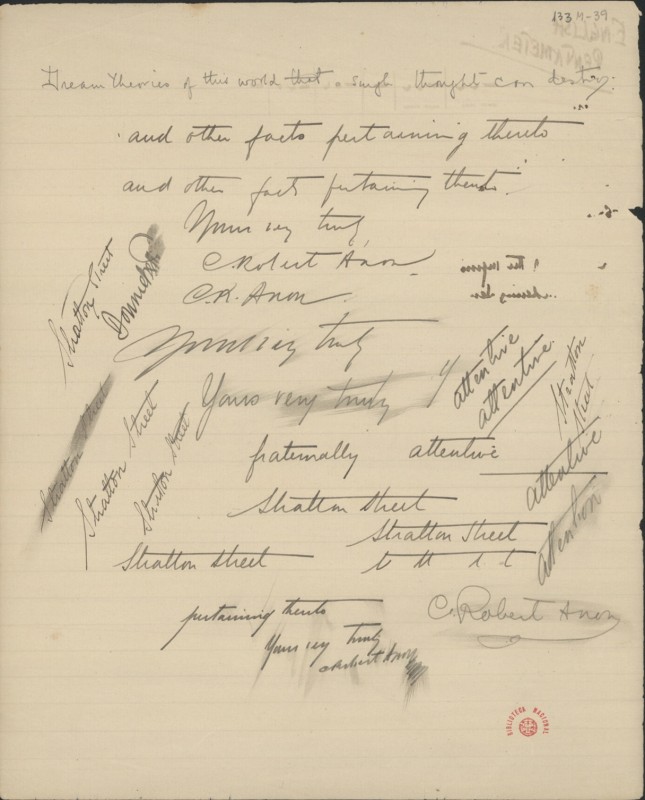 133 M-39
ENGLISH
PENTAMETER
Dream theories of this world that a single thought can destroy.
and other facts pertaining thereto
and other facts pertaining thereto.
Yours very truly
C. Robert Anon
C.R. Anon.
Stratton Street
Yours very truly
attentive
attentive
Stratton Street
Yours very truly
Stratton Street
Stratton Street
Stratton Street
fraternally attentive
attentive
Stratton Street
Stratton Street
attention
Stratton Street
pertaining thereto
C. Robert Anon
Yours very truly
C Robert Anon
BIBLIOTECA NACIONAL